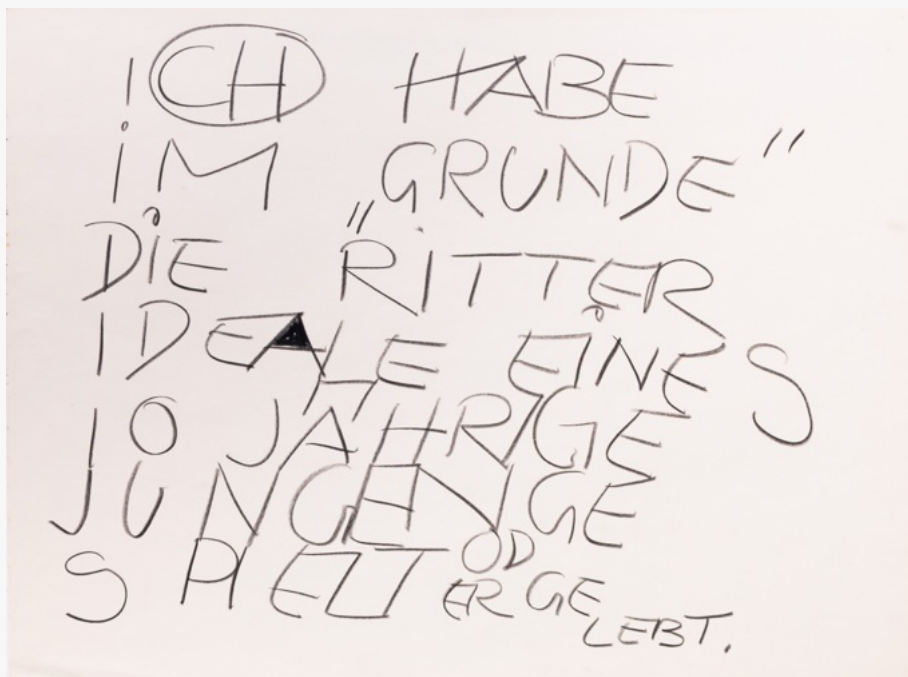 iCH HABE
iM „GRUNDE"
DiE "RiTTER
IDEALE EiNES
10 JAHRIGE
JUNGENGE
SPIELT OD
ER GE
LEBT.